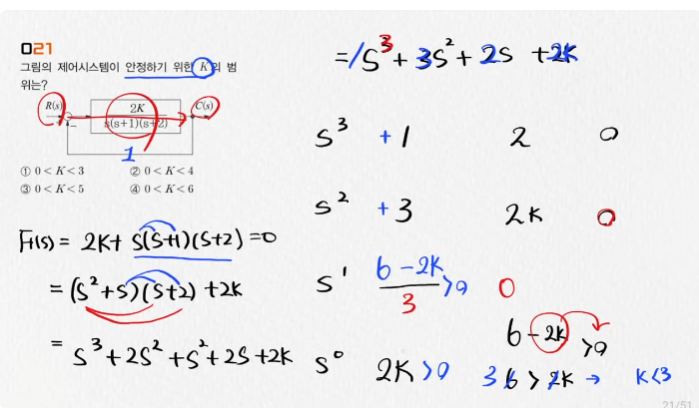 021
그림의 제어시스템이 안정하기 위한 K의 범
위는?
R(s) + − 2K / s(s+1)(s+2) C(s)
1
① 0 < K < 3 ② 0 < K < 4
③ 0 < K < 5 ④ 0 < K < 6
F(s) = 2K + s(s+1)(s+2) = 0
= (s²+s)(s+2) + 2K
= s³ + 2s² + s² + 2s + 2K
= 1s³ + 3s² + 2s + 2K
s³ +1 2 0
s² +3 2K 0
s¹ (6 − 2K)/3 >0 0
6 − 2K >0
s⁰ 2K >0
3 6 > 2K → K<3
21/51